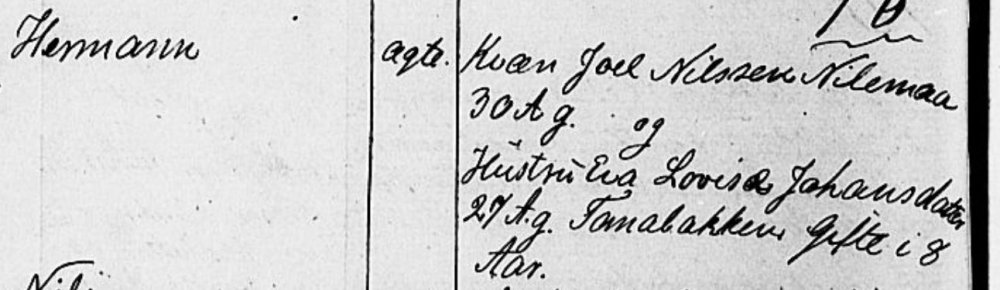 Hermann
agte.
Kvæn Joel Nilssen Nilemaa
30 A g. og
Hustru Eva Lovise Johansdatter
27 A. g. Tanabakken Gifte i 8
Aar.